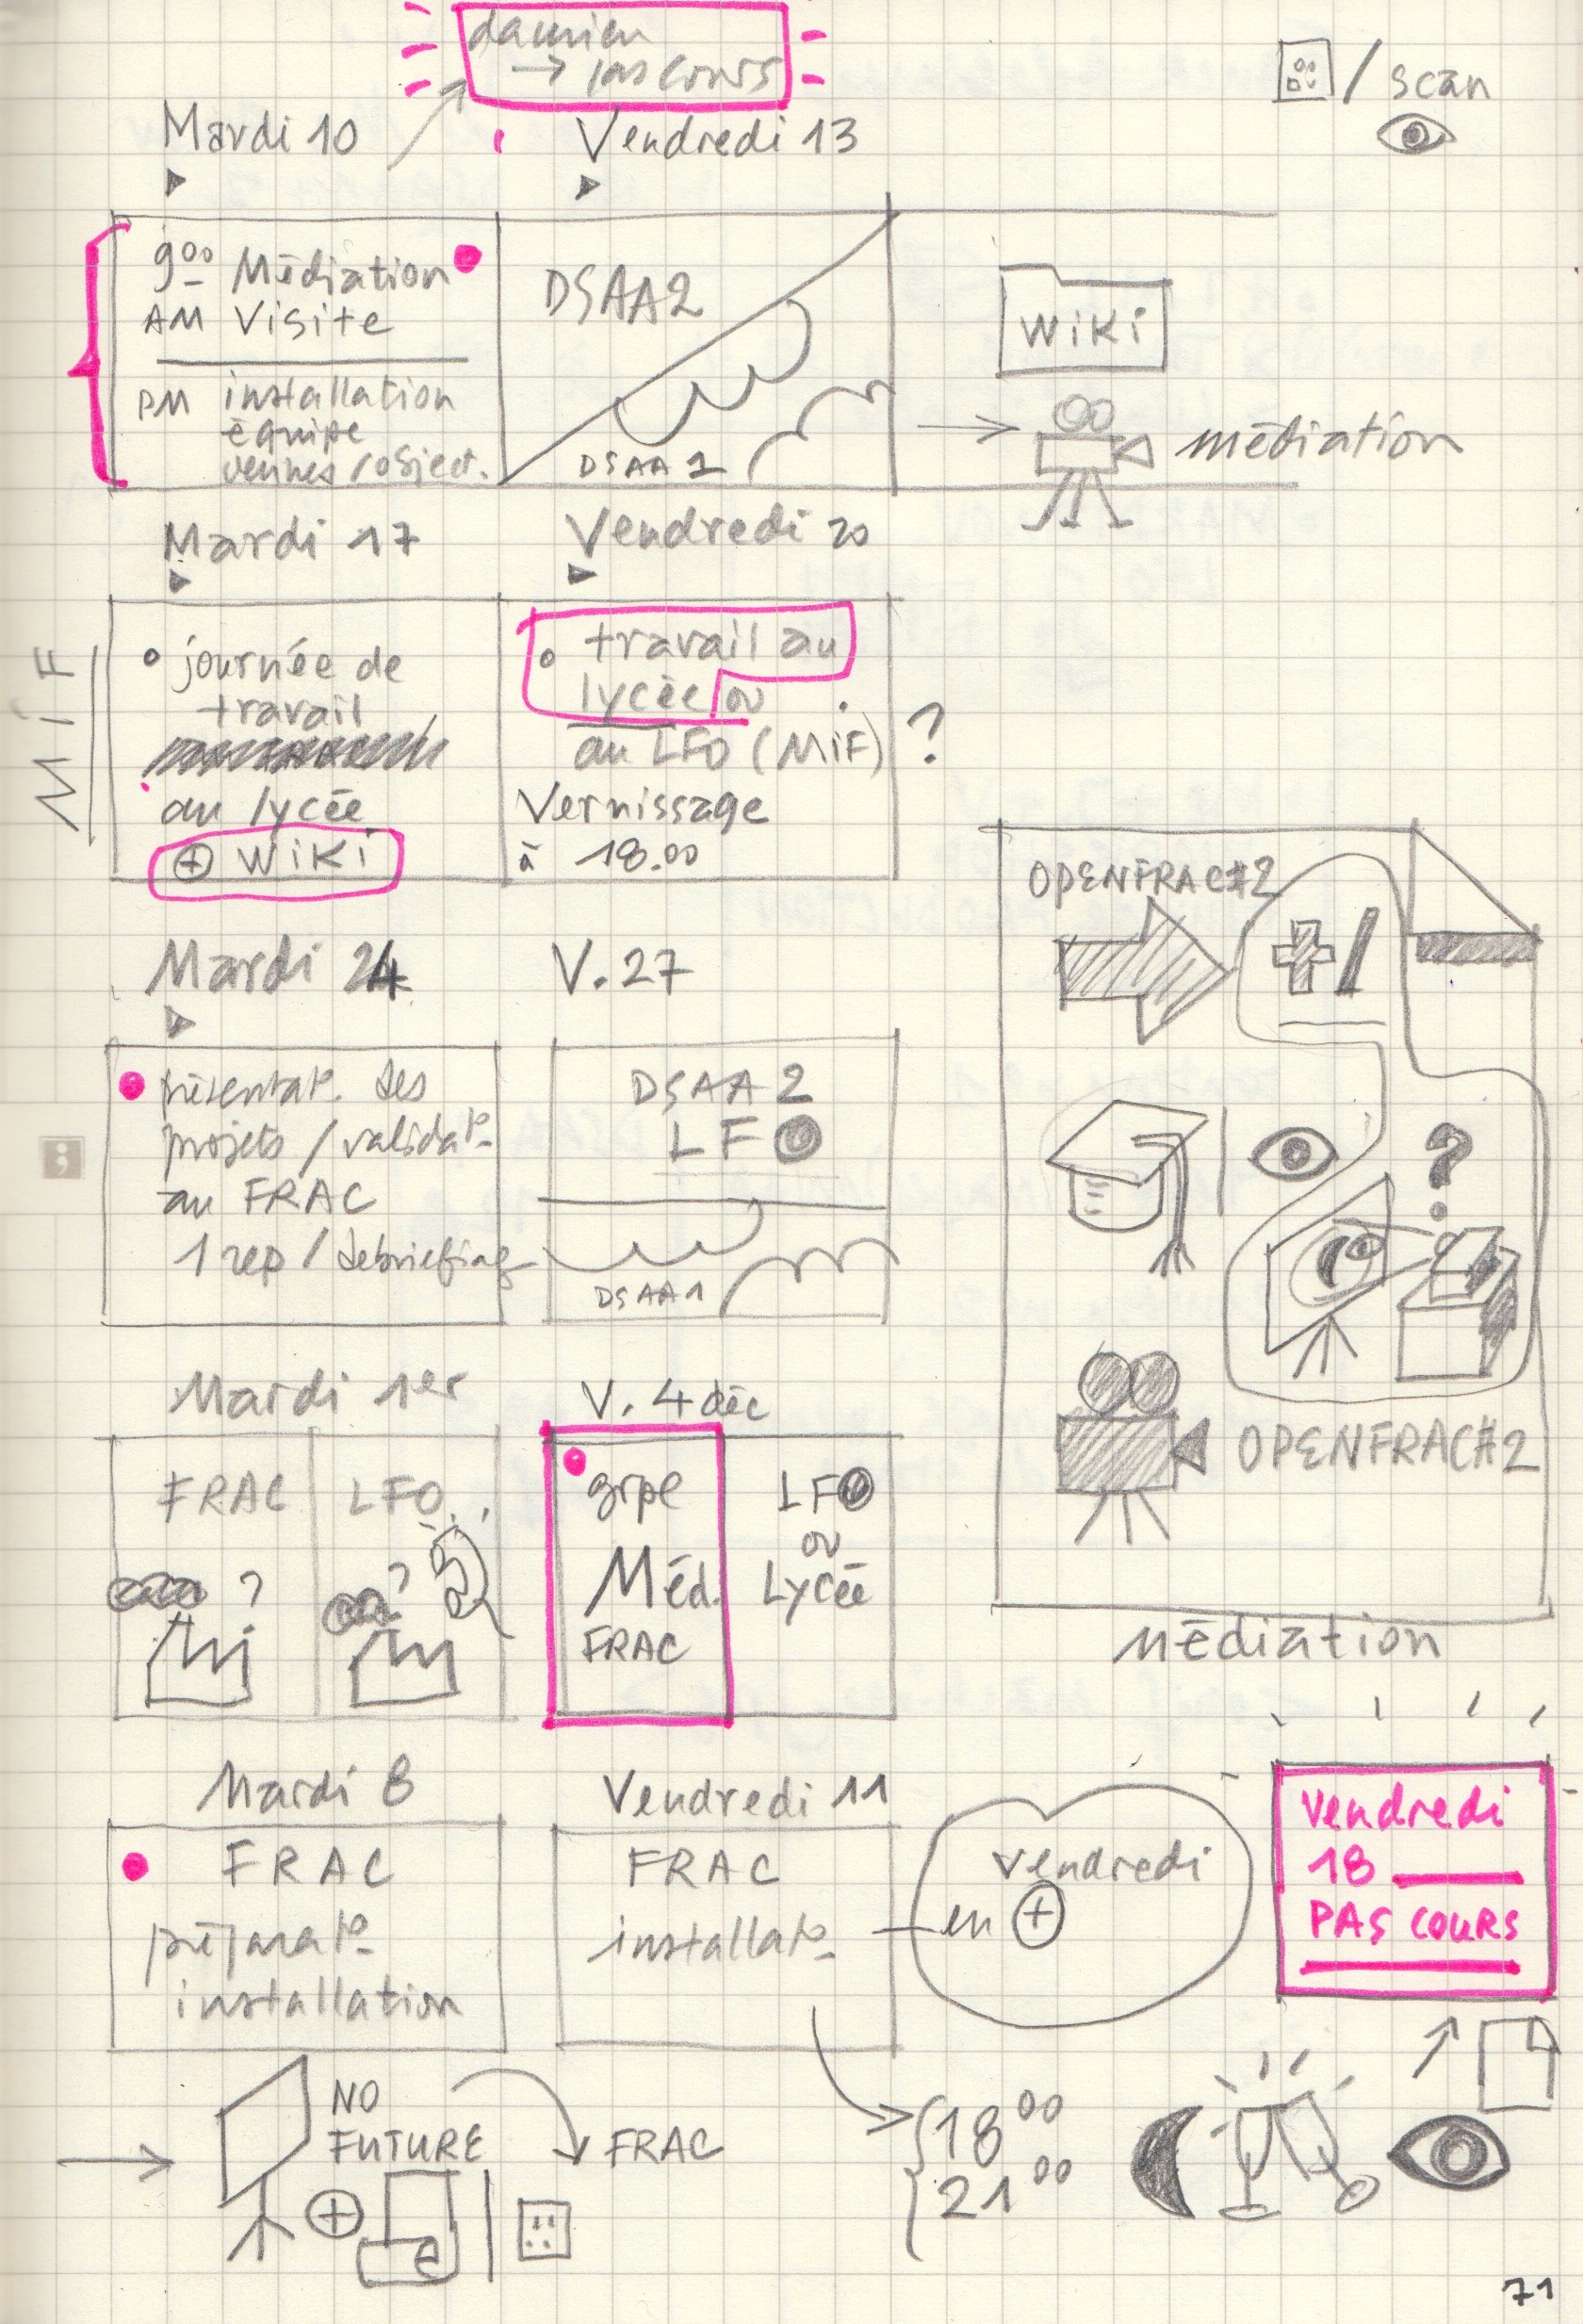 damien
→ pas cours
/ scan
Mardi 10
Vendredi 13
9⁰⁰ Médiation
AM Visite
PM installation
équipe
/ object.
DSAA2
DSAA 1
WiKi
médiation
Mardi 17
Vendredi 20
MiF
journée de
travail
au lycée
⊕ WiKi
travail au
lycée ou
au LFO (MiF) ?
Vernissage
à 18.00
Mardi 24
V. 27
présentat°. des
projets / validat°
au FRAC
1 rep / debriefing
DSAA 2
LFO
DSAA 1
OPENFRAC#2
+ /
?
OPENFRAC#2
médiation
Mardi 1er
V. 4 déc
FRAC
LFO
?
?
grpe
Méd.
FRAC
LFO
ou
Lycée
Mardi 8
Vendredi 11
FRAC
préparat°
installation
FRAC
installat°
Vendredi
en ⊕
Vendredi
18
PAS COURS
NO
FUTURE
FRAC
⊕
e
18⁰⁰
21⁰⁰
71